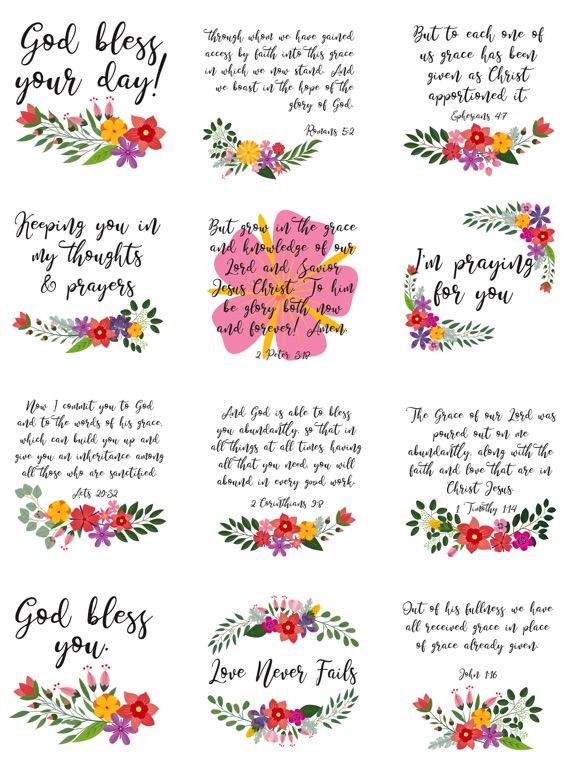 God bless
your day!
through whom we have gained
access by faith into this grace
in which we now stand. And
we boast in the hope of the
glory of God.
Romans 5:2
But to each one of
us grace has been
given as Christ
apportioned it.
Ephesians 4:7
Keeping you in
my thoughts
& prayers
But grow in the grace
and knowledge of our
Lord and Savior
Jesus Christ. To him
be glory both now
and forever! Amen.
2 Peter 3:18
I'm praying
for you
Now I commit you to God
and to the words of his grace,
which can build you up and
give you an inheritance among
all those who are sanctified.
Acts 20:32
And God is able to bless
you abundantly, so that in
all things at all times, having
all that you need, you will
abound in every good work.
2 Corinthians 9:8
The Grace of our Lord was
poured out on me
abundantly, along with the
faith and love that are in
Christ Jesus.
1 Timothy 1:14
God bless
you.
Love Never Fails
Out of his fullness we have
all received grace in place
of grace already given.
John 1:16